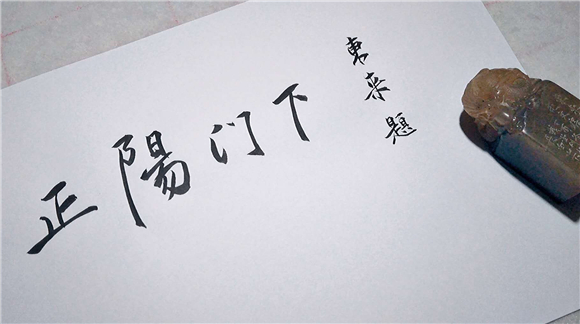 正陽门下
東来題